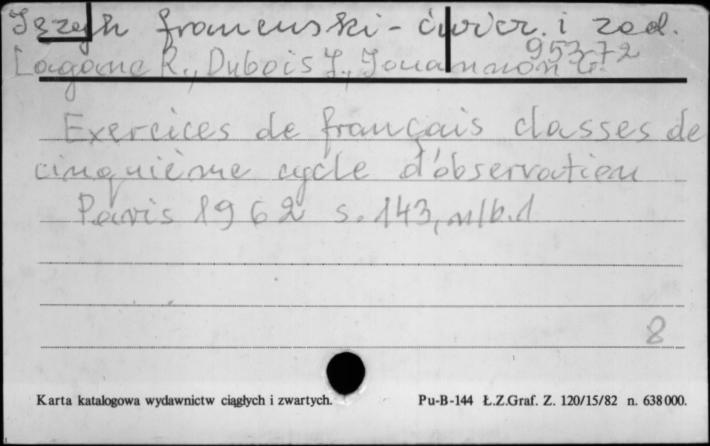 Język francuski - ćwicz. i zad.
95372
Lagane R., Dubois J., Jouannon G.
Exercices de français classes de
cinquième cycle d'observation
Paris 1962 s. 143, nlb. 1
8
Karta katalogowa wydawnictw ciągłych i zwartych. Pu-B-144 Ł.Z.Graf. Z. 120/15/82 n. 638000.